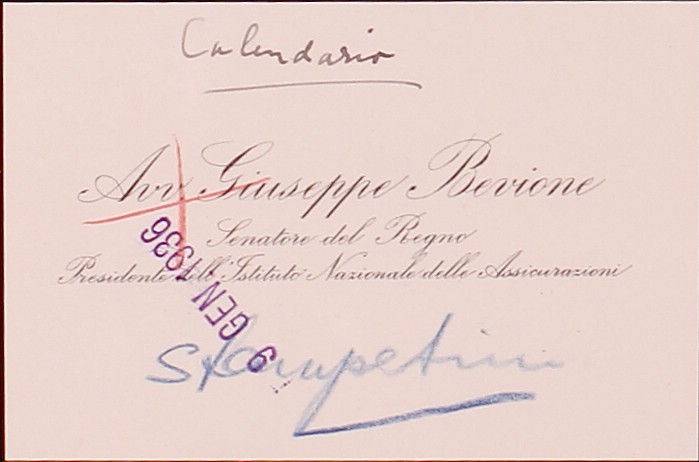 Calendario
Avv. Giuseppe Bevione
Senatore del Regno
Presidente dell'Istituto Nazionale delle Assicurazioni
9 GEN 1936